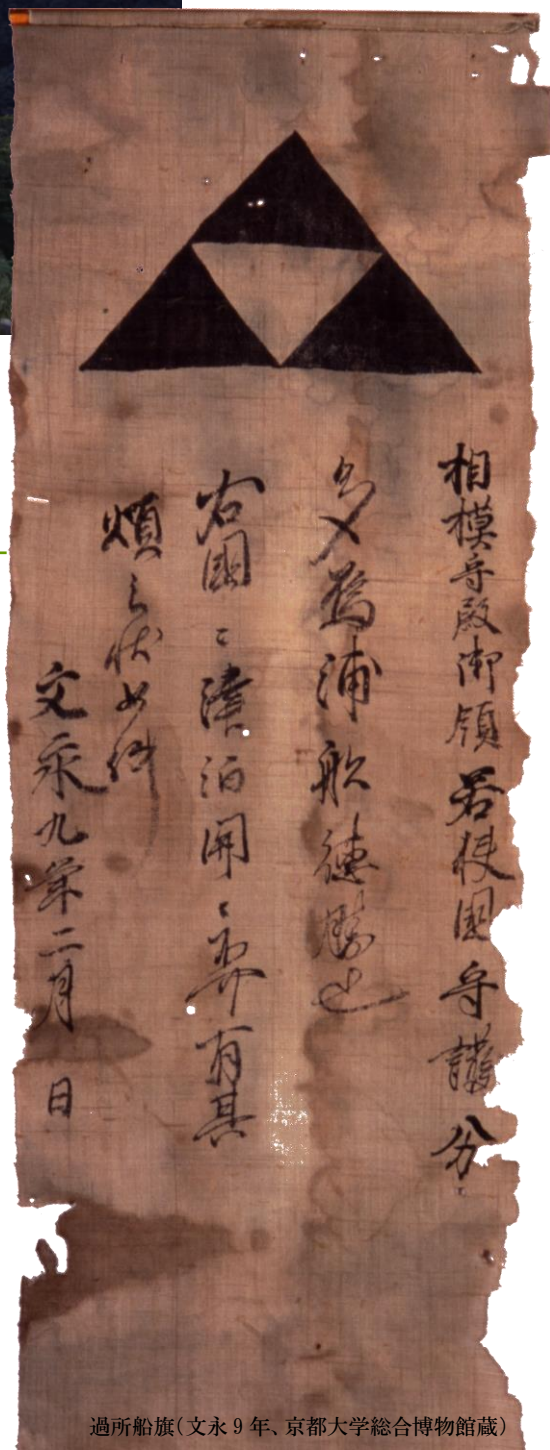 相模守殿御領若狭国守護分
多烏浦船徳勝也
右國〻津泊関〻不可有其
煩之状如件
文永九年二月　日
過所船旗（文永9年、京都大学総合博物館蔵）